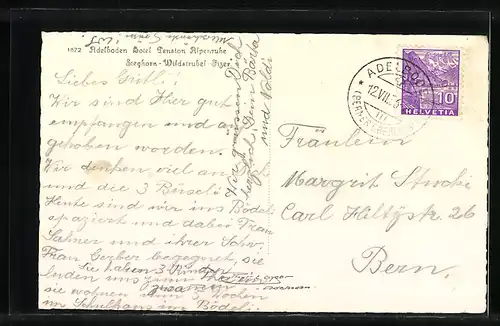 1872 Adelboden Hotel Pension Alpenruhe
Steghorn-Wildstrubel-Fizer
Liebes Gritli!
Wir sind Hier gut
empfangen und an
gehoben worden.
Wir denken viel an
und die 3 Büseli
Heute sind wir ins Bodeli
spaziert und dabei Frau
und ihrer
Frau Gerber begegnet, sie
Sie haben 3
luden uns zum
sie wohnen 3 Wochen
im Schulhaus im Bodeli.
Wir grüssen Dich
herzlich, Dein Bärta
und Waldi
ADELBODEN
12.VII.
HELVETIA
10
Fräulein
Margrit Stucki
Carl Hiltystr. 26
Bern.